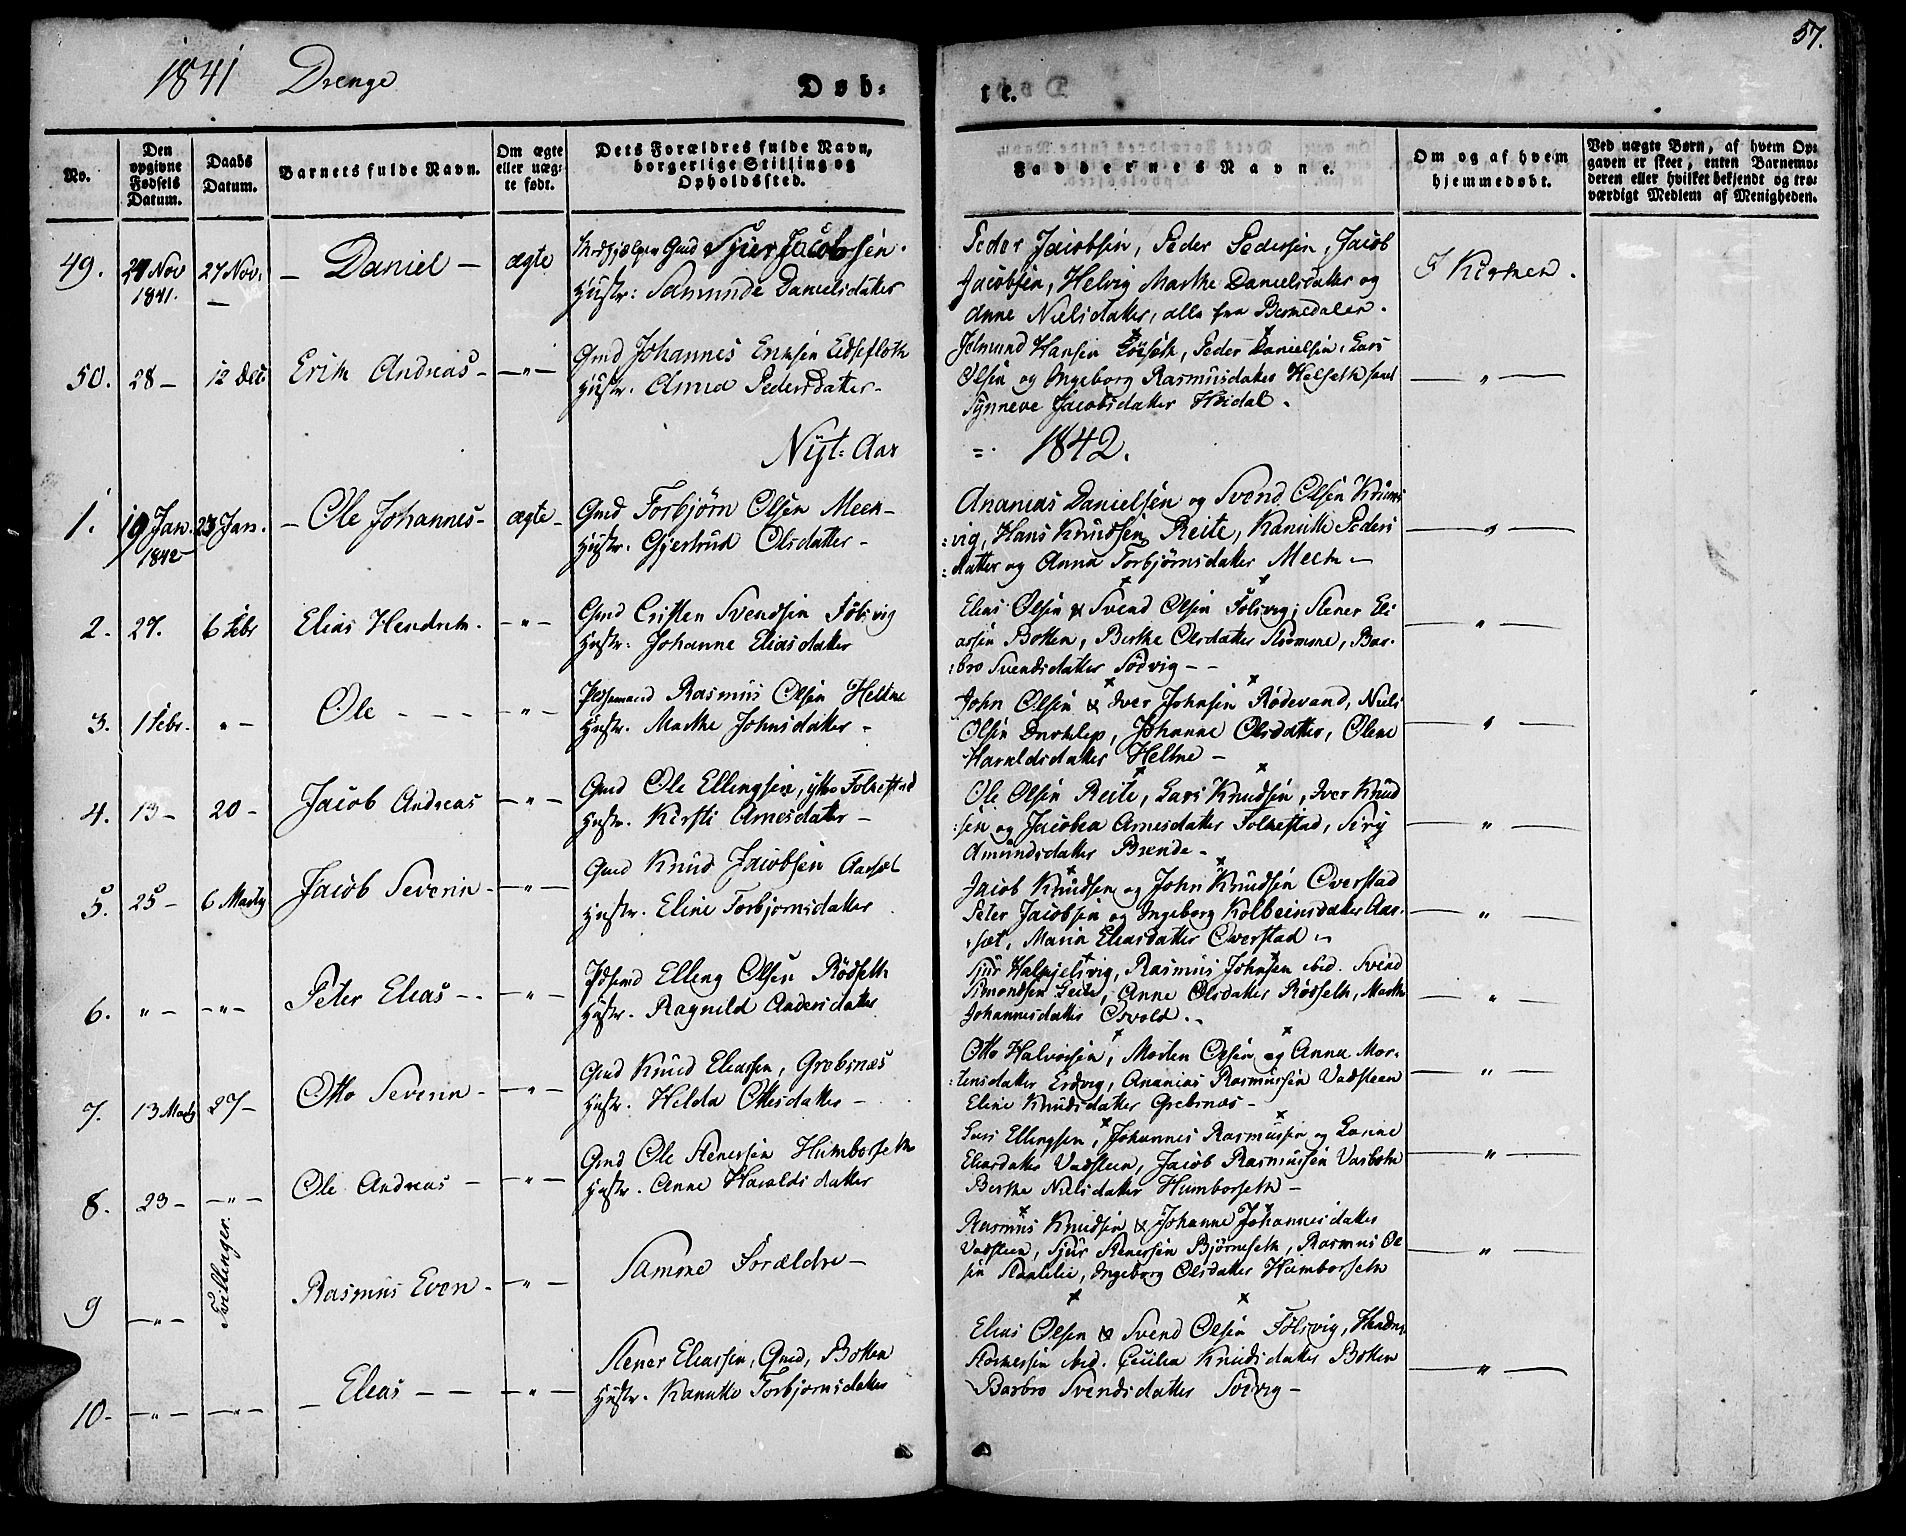 1841 Drenge
Døb-
te.
57.
No.
Den opgivne Fødsels Datum.
Daabs Datum.
Barnets fulde Navn.
Om ægte eller uæg-
te født.
Dets Forældres fulde Navn,
borgerlige Stilling og
Opholdssted.
Faddernes Navne.
Om og af hvem
hjemmedøbt.
Ved uægte Børn, af hvem Op-
gaven er skeet, enten Barnemo-
deren eller hvilket bekjendt og tro-
værdigt Medlem af Menigheden.
49. 27 Nov 1841. 27 Nov. – Daniel – ægte
Gmd Sjur Jacobsen.
Hustr: Samunde Danielsdatter
Peder Jacobsen, Peder Pedersen, Jacob
Jacobsen, Helvig Marthe Danielsdatter og
Anne Nielsdatter, alle fra Bernedalen.
I Kirken.
50. 28 – 12 Dec Erik Andreas – – " –
Gmd Johannes Eriksen Eidsefloth
Hustr. Anna Pedersdatter –
Jetmund Hansen, Peder Danielsen, Lars
Olsen og Ingeborg Rasmusdatter Helseth samt
Synneve Jacobsdatter Hovdal.
– " –
Nyt-Aar
=. 1842.
1. 19 Jan. 1842 23 Jan. – Ole Johannes – ægte –
Gmd Torbjørn Olsen Meek –
Hustr. Gjertrud Olsdatter –
Ananias Danielsen og Svend Olsen Krums
vig, Hans Knudsen Reite, Kanutte Peders
datter og Anna Torbjørnsdatter Meek –
– " –
2. 27. 6 Febr Elias Hendrik. – " –
Gmd Cristen Svendsen Følsvig
Hustr: Johanne Eliasdatter
Elias Olsen & Svend Olsen Følsvig, Stener Eli
assen Botten, Berthe Olsdatter Strømme, Bar-
bro Svendsdatter Sødvig – –
– " –
3. 1 Febr. " – Ole – – – – " –
Pdsemand Rasmus Olsen Heltne
Hustr. Marthe Johnsdatter –
John Olsen & Iver Johnsen Rødevand, Niels
Olsen, Johanne Olsdatter, Olene
Haraldsdatter Heltne –
– " –
4. 13 – 20 – Jacob Andreas – " –
Gmd Ole Ellingsen, ytre Folkestad
Hustr. Kirsti Arnesdatter –
Ole Olsen Reite, Lars Knudsen, Iver Knud
sen og Jacobea Arnesdatter Folkestad, Siry
Amundsdatter Brende –
– " –
5. 25 – 6 Marts Jacob Severin – – " –
Gmd Knud Jacobsen Aarset
Hustr. Eline Torbjørnsdatter
Jacob Knudsen og John Knudsen Overstad
Peter Jacobsen og Ingeborg Kolbeinsdatter Aar-
sæt, Maria Eleasdatter Overstad –
– " –
6. " – – " – Peter Elias – – – " –
Pdsemd Elling Olsen Rødseth
Hustr. Ragnild Andersdatter
Sjur Halkjelsvig, Rasmus Johnsen ibid. Svend
Simondsen Leite, Anne Olsdatter Rødseth, Marthe
Johannesdatter Osvold. –
– " –
7. 13 Marts 27 – Otto Severin – – " –
Gmd Knud Eleassen, Grebsnæs
Hustr. Helda Ottesdatter –
Otto Halvorsen, Morten Olsen og Anna Mor-
tensdatter Erdvig, Ananias Rasmussen Vadsteen
Eline Knudsdatter Grebsnæs –
– " –
8. 23 – – " – Ole Andreas – – " –
Gmd Ole Stenersen Humborseth
Hustr. Anne Haraldsdatter
Lars Ellingsen, Johannes Rasmussen og Larine
Eleasdatter Vadsteen, Jacob Rasmussen Vasboth
Berthe Nielsdatter Humborseth –
– " –
Tvillinger.
9 – " – Rasmus Even – – " –
Samme Forældre –
Rasmus Knudsen & Johanne Johannesdatter
Vadsteen, Sjur Stenersen Bjørneseth, Rasmus Ol
sen, Ingeborg Olsdatter Humborseth
– " –
10. – " – – " – – Eleas – – – " –
Stener Eleassen, Gmd, Botten
Hustr. Kanutte Torbjørnsdatter
Elias Olsen & Svend Olsen Følsvig, Hendrik
ibid. Cecilia Knudsdatter Botten
Barbro Svendsdatter Sødvig –
– " –